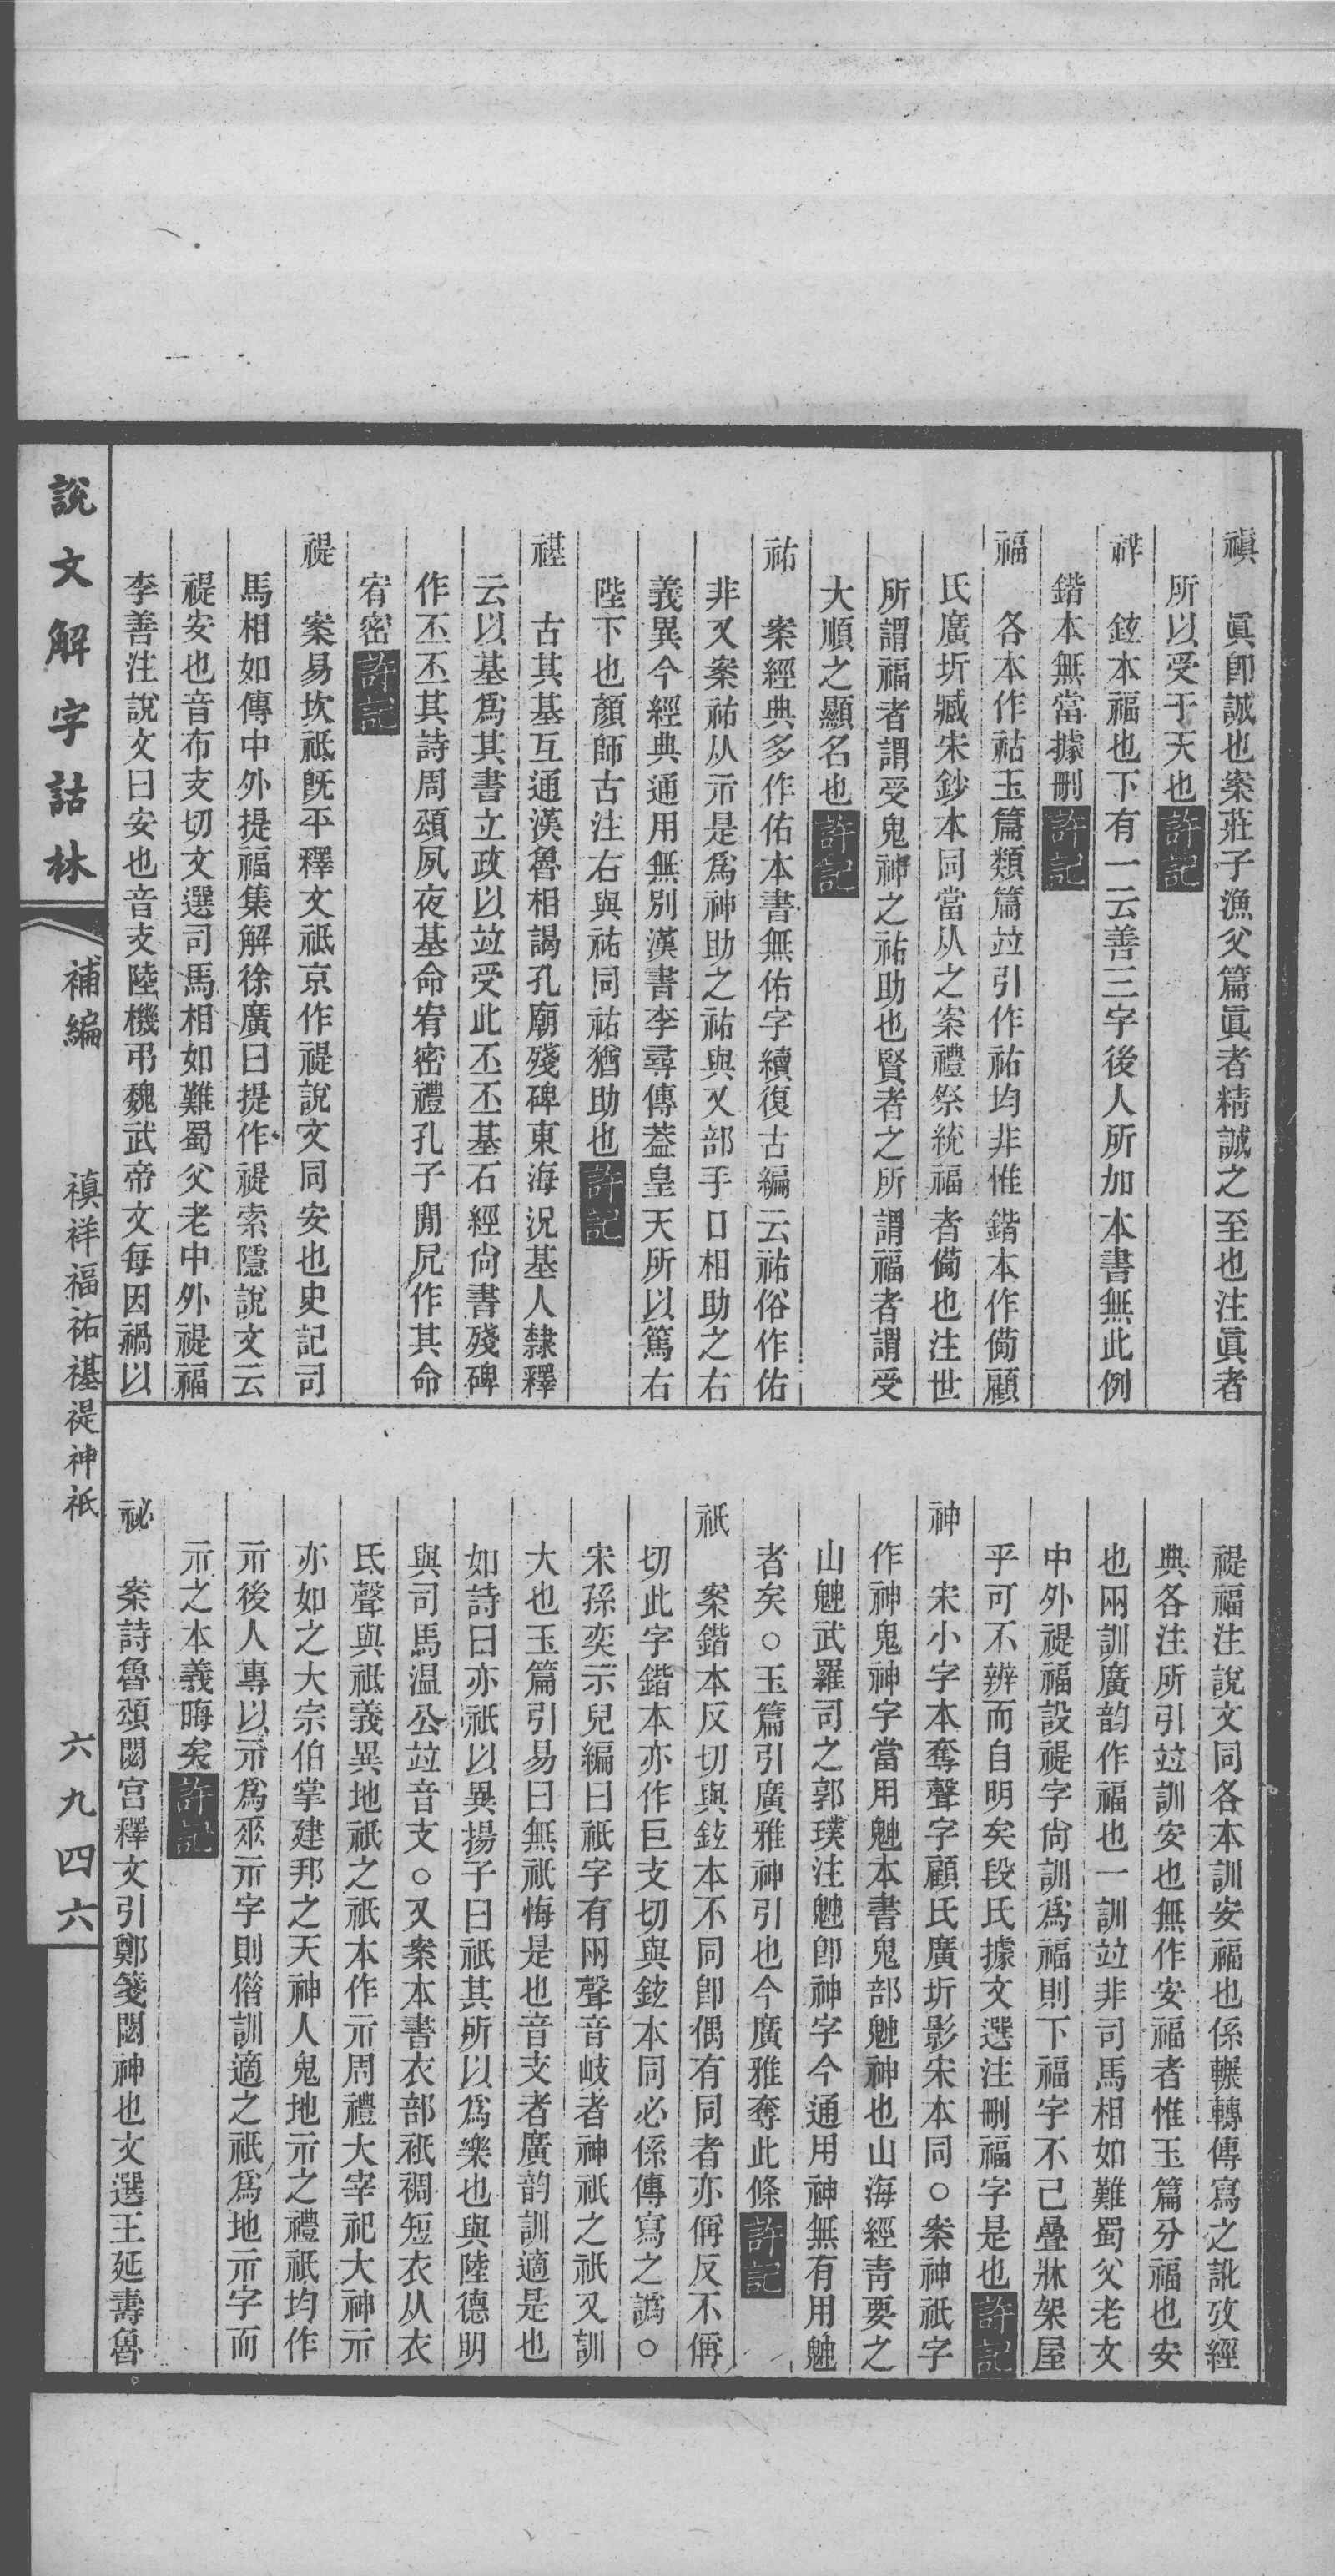 禛　眞卽誠也案莊子漁父篇眞者精誠之至也注眞者
所以受于天也許記
祥　鉉本福也下有一云善三字後人所加本書無此例
鍇本無當據刪許記
福　各本作祜玉篇類篇竝引作祐均非惟鍇本作僃顧
氏廣圻臧宋鈔本同當从之案禮祭統福者僃也注世
所謂福者謂受鬼神之祐助也賢者之所謂福者謂受
大順之顯名也許記
祐　案經典多作佑本書無佑字續復古編云祐俗作佑
非又案祐从示是爲神助之祐與又部手口相助之右
義異今經典通用無別漢書李尋傳葢皇天所以篤右
陛下也顏師古注右與祐同祐猶助也許記
禥　古其基互通漢魯相謁孔廟殘碑東海況基人隸釋
云以基爲其書立政以竝受此丕丕基石經尙書殘碑
作丕丕其詩周頌夙夜基命宥密禮孔子閒凥作其命
宥密許記
禔　案易坎祗旣平釋文祗京作禔說文同安也史記司
馬相如傳中外提福集解徐廣曰提作禔索隱說文云
禔安也音布支切文選司馬相如難蜀父老中外禔福
李善注說文曰安也音支陸機弔魏武帝文每因禍以
禔福注說文同各本訓安福也係輾轉傳寫之訛攷經
典各注所引竝訓安也無作安福者惟玉篇分福也安
也兩訓廣韵作福也一訓竝非司馬相如難蜀父老文
中外禔福設禔字尙訓爲福則下福字不已疊牀架屋
乎可不辨而自明矣段氏據文選注刪福字是也許記
神　宋小字本奪聲字顧氏廣圻影宋本同○案神祇字
作神鬼神字當用䰠本書鬼部䰠神也山海經青要之
山䰠武羅司之郭璞注䰠卽神字今通用神無有用䰠
者矣○玉篇引廣雅神引也今廣雅奪此條許記
祇　案鍇本反切與鉉本不同卽偶有同者亦偁反不偁
切此字鍇本亦作巨支切與鉉本同必係傳寫之譌○
宋孫奕示兒編曰祇字有兩聲音岐者神祇之祇又訓
大也玉篇引易曰無祇悔是也音支者廣韵訓適是也
如詩曰亦祇以異揚子曰祇其所以爲樂也與陸德明
與司馬温公竝音支○又案本書衣部祇裯短衣从衣
氐聲與祗義異地祇之祇本作示周禮大宰祀大神示
亦如之大宗伯掌建邦之天神人鬼地示之禮祇均作
示後人專以示爲𠂹示字則偺訓適之祇爲地示字而
示之本義晦矣許記
祕　案詩魯頌閟宮釋文引鄭箋閟神也文選王延壽魯
說文解字詁林
補編
禛祥福祐禥禔神祇
六九四六